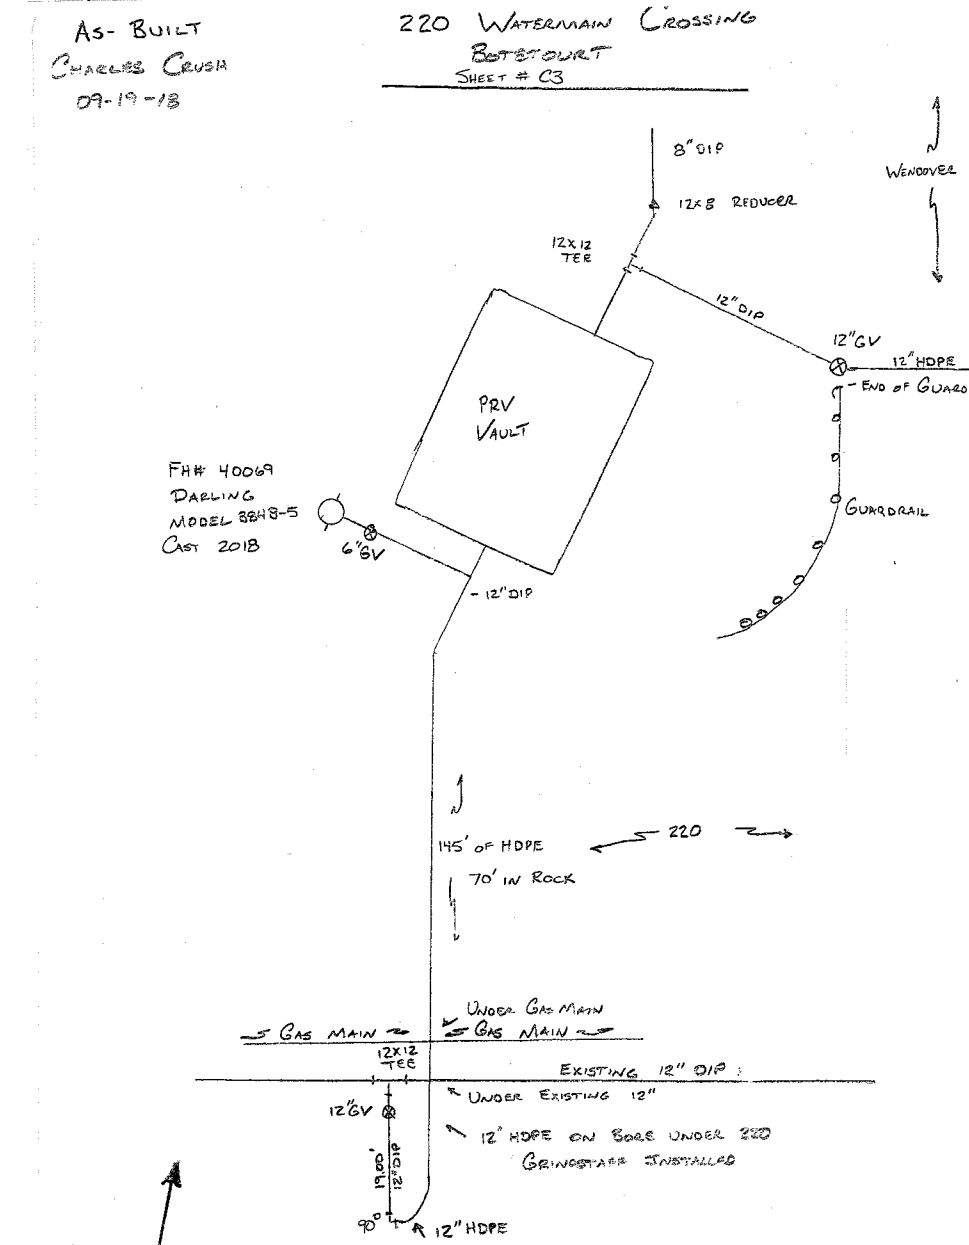 AS-BUILT
CHARLES CRUSH
09-19-18
220 WATERMAIN CROSSING
BOTETOURT
SHEET # C3
8" DIP
12x8 REDUCER
WENDOVER
12x12
TEE
12" DIP
12" GV
12" HDPE
- END OF GUARD
PRV
VAULT
FH# 40069
DARLING
MODEL B84B-5
CAST 2018
6" GV
GUARDRAIL
- 12" DIP
145' OF HDPE
220
70' IN ROCK
UNDER GAS MAIN
GAS MAIN
GAS MAIN
12x12
TEE
EXISTING 12" DIP
UNDER EXISTING 12"
12" GV
12" HDPE ON BORE UNDER 220
GRINDSTAFF INSTALLED
12" DIP
19.00'
90°
12" HDPE